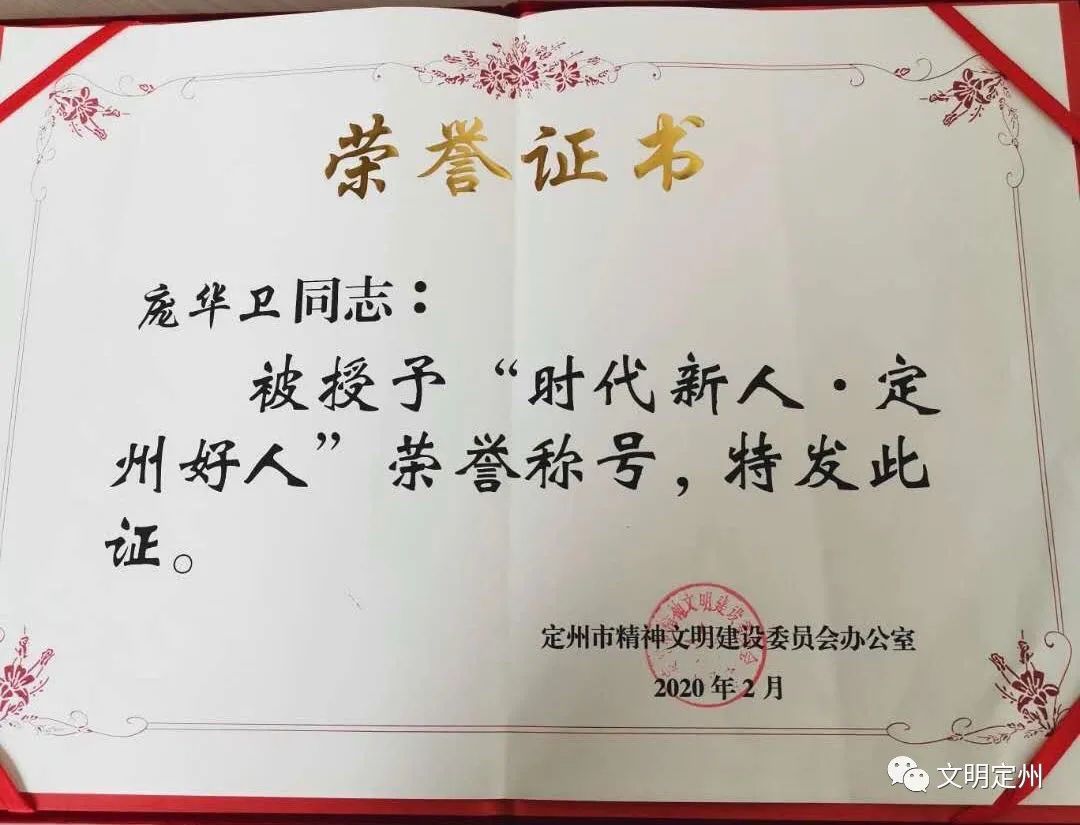 荣誉证书
庞华卫同志：
被授予“时代新人·定
州好人”荣誉称号，特发此
证。
定州市精神文明建设委员会办公室
2020年2月
文明定州